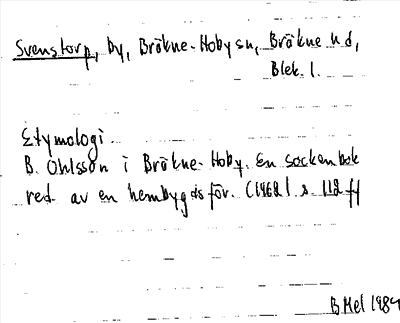 Svenstorp, by, Bräkne-Hoby sn, Bräkne hd,
Blek. l.
Etymologi.
B. Ohlsson i Bräkne-Hoby. En sockenbok
red. av en hembygdsför. (1962) s. 112 ff
B Mel 1984